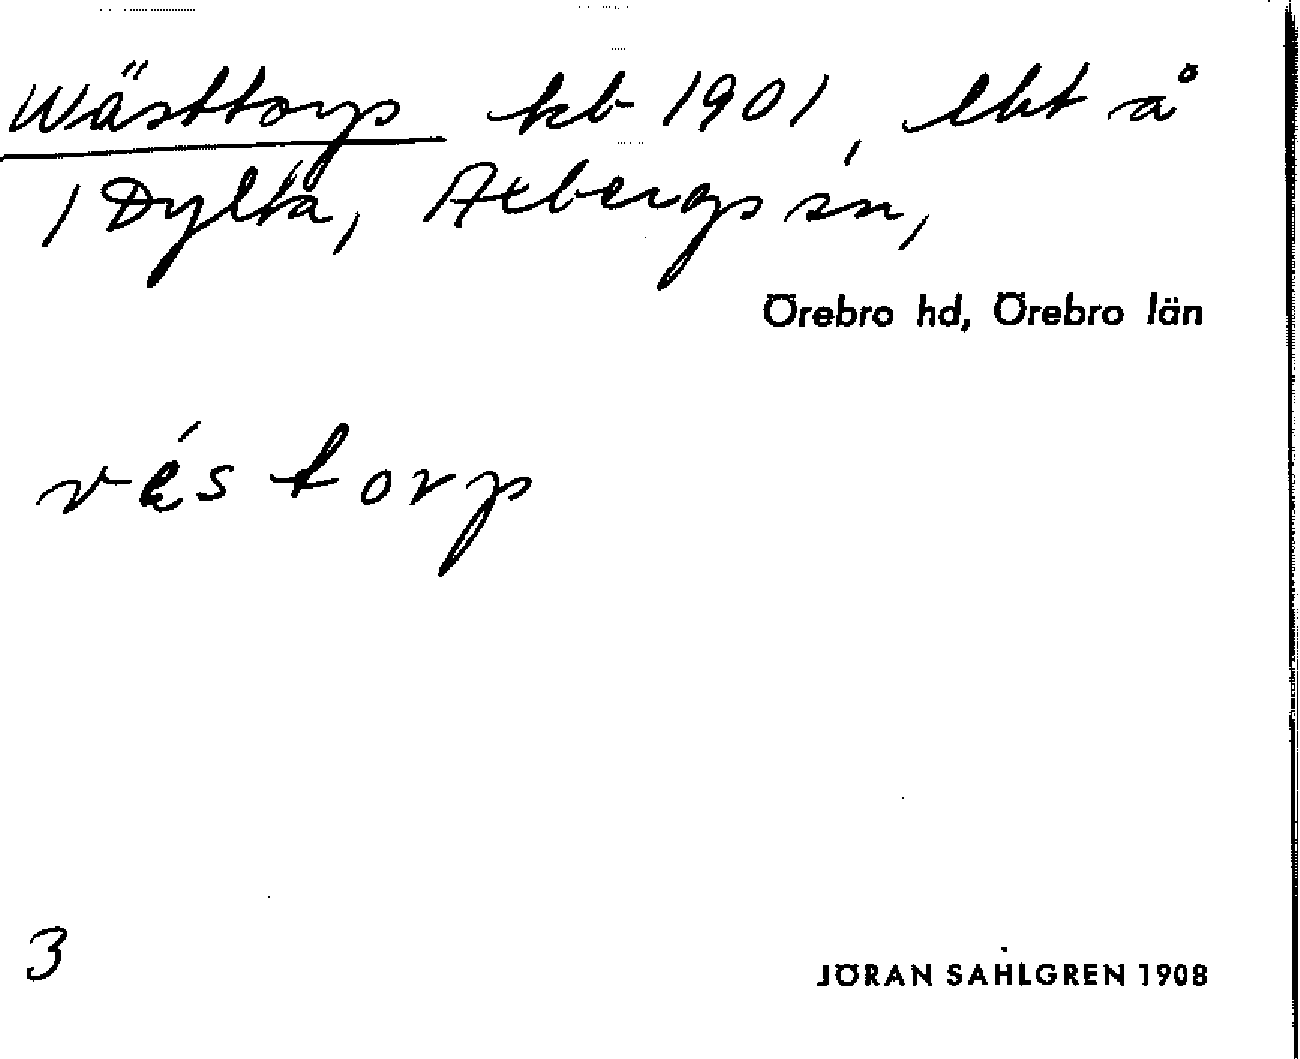 Wästtorp kb 1901, lht å
1 Dylta, Axbergs sn,
Örebro hd, Örebro län
véstorp
3
JÖRAN SAHLGREN 1908